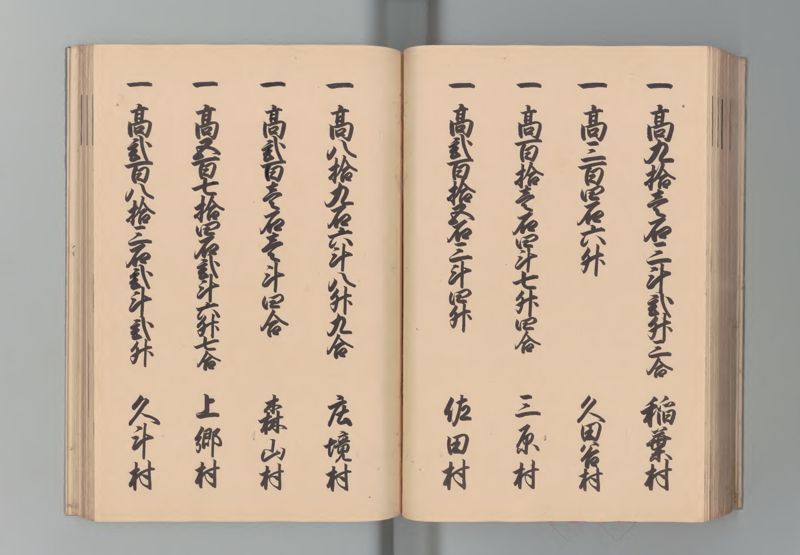 一 高九拾壱石三斗弐升三合 稲葉村
一 高三百四石六升 久田谷村
一 高百拾壱石四斗七升四合 三原村
一 高弐百拾五石三斗四升 佐田村
一 高八拾九石六斗八升九合 広境村
一 高弐百壱石壱斗四合 森山村
一 高五百七拾四石弐斗六升七合 上郷村
一 高弐百八拾三石弐斗弐升 久斗村